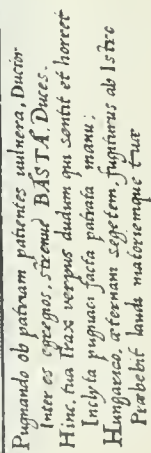 Pugnando ob patriam patientes vulnera, Ductor
Inter es egregios, strenuè BASTA, Duces.
Hinc, tua Thrax verpus dudum qui sentit et horret
Inclyta pugnaci facta patrata manu;
Hungarico, æternam segetem, fugiturus ab Istro
Præbebit laudi materiemque tuæ